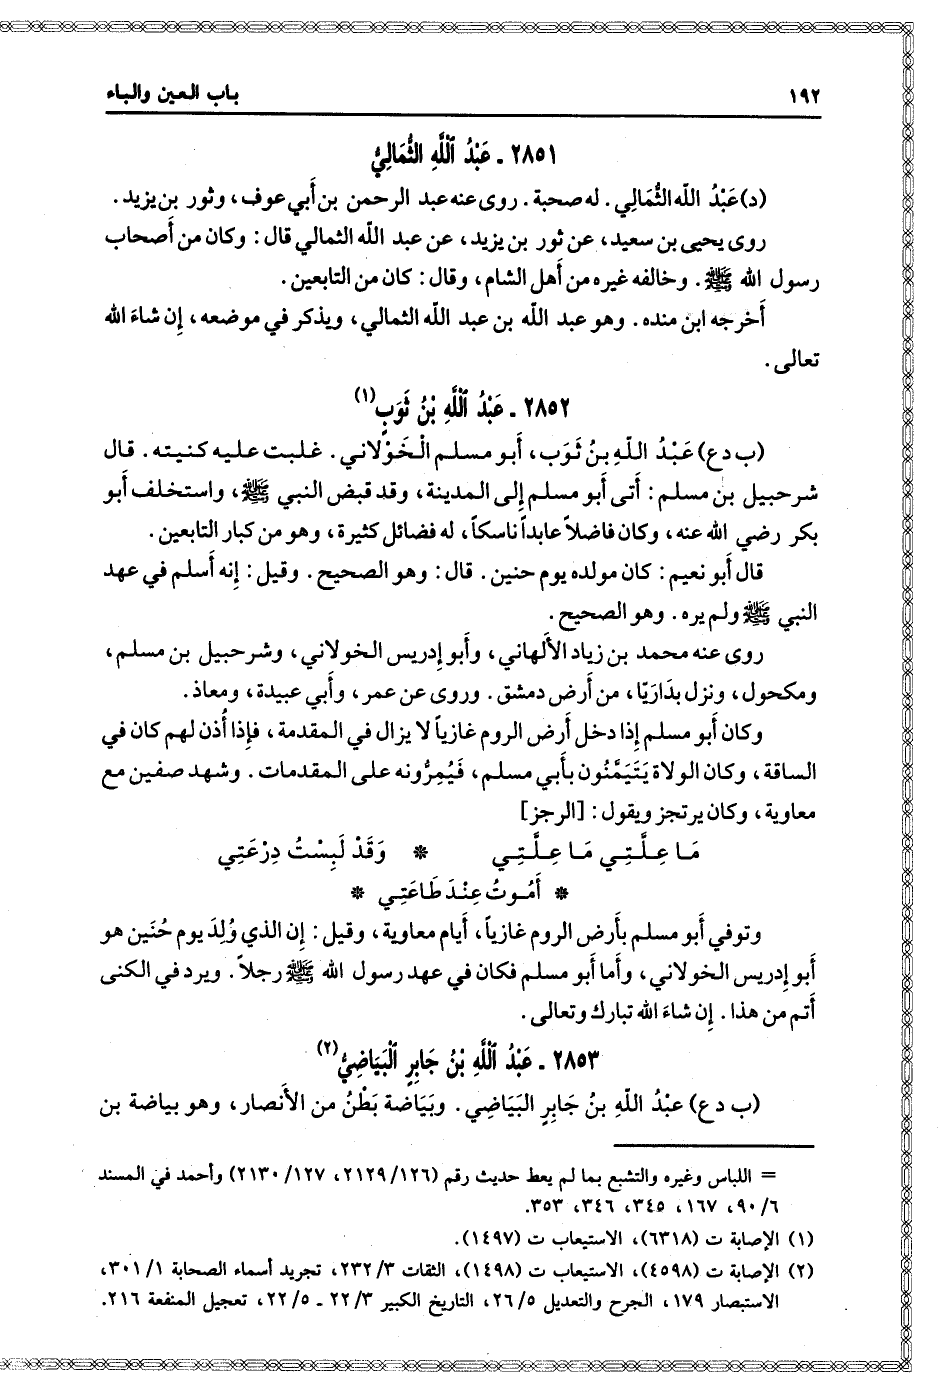 ١٩٢ باب العين والباء
٢٨٥١ ـ عَبْدُ ٱللَّهِ الثُّمَالِيُّ
(د) عَبْدُ اللّه الثُّمَالِي. له صحبة. روى عنه عبد الرحمن بن أَبي عوف، وثور بن يزيد.
روى يحيى بن سعيد، عن ثور بن يزيد، عن عبد اللّه الثمالي قال: وكان من أَصحاب
رسول الله ﷺ. وخالفه غيره من أَهل الشام، وقال: كان من التابعين.
أَخرجه ابن منده. وهو عبد الله بن عبد اللّه الثمالي، ويذكر في موضعه، إِن شاءَ الله
تعالى.
٢٨٥٢ ـ عَبْدُ ٱللَّهِ بْنُ ثَوَبٍ(١)
(ب د ع) عَبْدُ اللّهِ بنُ ثَوَب، أَبو مسلم الْخَوْلاني. غلبت عليه كنيته. قال
شرحبيل بن مسلم: أَتى أَبو مسلم إِلى المدينة، وقد قبض النبي ﷺ، واستخلف أَبو
بكر رضي الله عنه، وكان فاضلاً عابداً ناسكاً، له فضائل كثيرة، وهو من كبار التابعين.
قال أَبو نعيم: كان مولده يوم حنين. قال: وهو الصحيح. وقيل: إِنه أَسلم في عهد
النبي ﷺ ولم يره. وهو الصحيح.
روى عنه محمد بن زياد الأَلْهاني، وأَبو إِدريس الخولاني، وشرحبيل بن مسلم،
ومكحول، ونزل بدَارَيّا، من أَرض دمشق. وروى عن عمر، وأَبي عبيدة، ومعاذ.
وكان أَبو مسلم إِذا دخل أَرض الروم غازياً لا يزال في المقدمة، فإِذا أُذن لهم كان في
الساقة، وكان الولاة يَتَيَمَّنُون بأَبي مسلم، فَيُمِرُّونه على المقدمات. وشهد صفين مع
معاوية، وكان يرتجز ويقول: [الرجز]
مَا عِلَّتِي مَا عِلَّتِي * وَقَدْ لَبِسْتُ دِرْعَتِي
* أَمُوتُ عِنْدَ طَاعَتِي *
وتوفي أَبو مسلم بأَرض الروم غازياً، أَيام معاوية، وقيل: إِن الذي وُلِدَ يوم حُنَين هو
أَبو إِدريس الخولاني، وأَما أَبو مسلم فكان في عهد رسول الله ﷺ رجلاً. ويرد في الكنى
أَتم من هذا. إِن شاءَ الله تبارك وتعالى.
٢٨٥٣ ـ عَبْدُ ٱللَّهِ بْنُ جَابِرٍ ٱلْبَيَاضِيُّ(٢)
(ب د ع) عبْدُ اللّهِ بنُ جَابِرٍ البَيَاضِي. وبَيَاضة بَطْنُ من الأَنصار، وهو بياضة بن
= اللباس وغيره والتشبع بما لم يعط حديث رقم (٢١٢٩/١٢٦، ٢١٣٠/١٢٧) وأحمد في المسند
٩٠/٦، ١٦٧، ٣٤٥، ٣٤٦، ٣٥٣.
(١) الإصابة ت (٦٣١٨)، الاستيعاب ت (١٤٩٧).
(٢) الإصابة ت (٤٥٩٨)، الاستيعاب ت (١٤٩٨)، الثقات ٢٣٢/٣، تجريد أسماء الصحابة ٣٠١/١،
الاستبصار ١٧٩، الجرح والتعديل ٢٦/٥، التاريخ الكبير ٢٢/٣ ـ ٢٢/٥، تعجيل المنفعة ٢١٦.